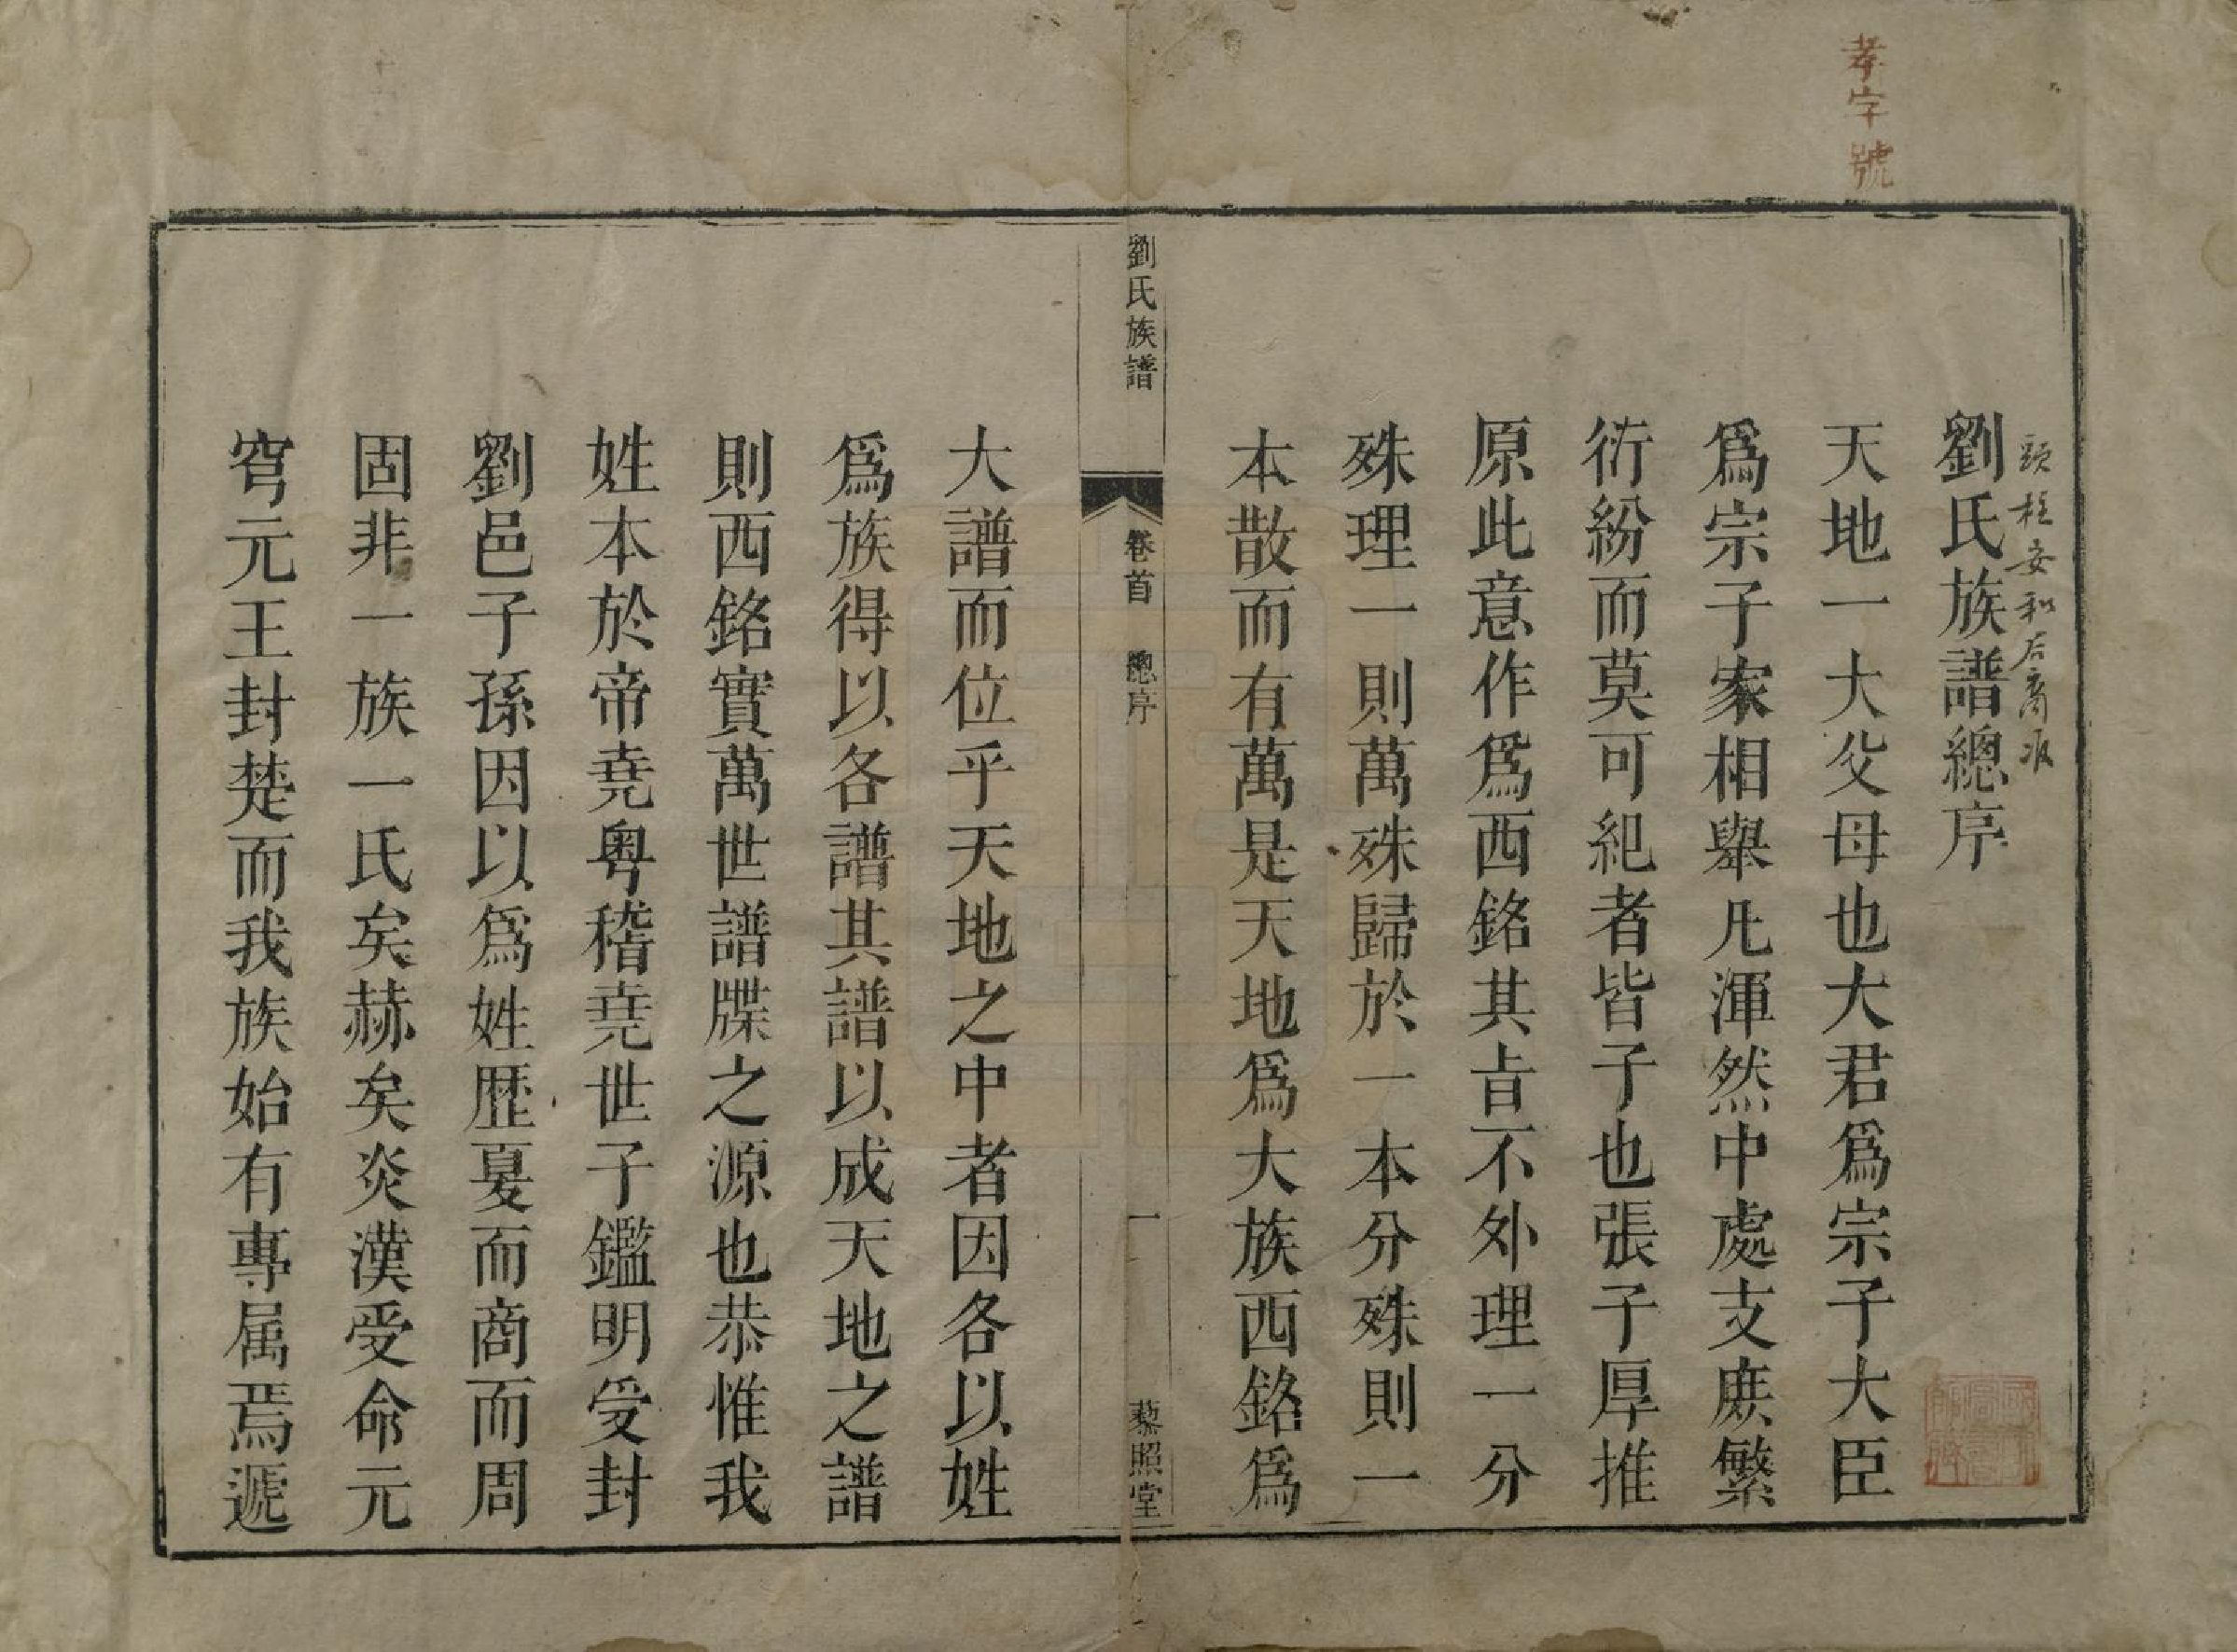 孝字號
劉氏族譜總序
天地一大父母也大君爲宗子大臣
爲宗子家相舉凡渾然中處支庶繁
衍紛而莫可紀者皆子也張子厚推
原此意作爲西銘其㫖不外理一分
殊理一則萬殊歸於一本分殊則一
本散而有萬是天地爲大族西銘爲
劉氏族譜
卷首 總序
一
藜照堂
大譜而位乎天地之中者因各以姓
爲族得以各譜其譜以成天地之譜
則西銘實萬世譜牒之源也恭惟我
姓本於帝堯粵稽堯世子鑑明受封
劉邑子孫因以爲姓歴夏而商而周
固非一族一氏矣赫矣炎漢受命元
穹元王封楚而我族始有專属焉遞